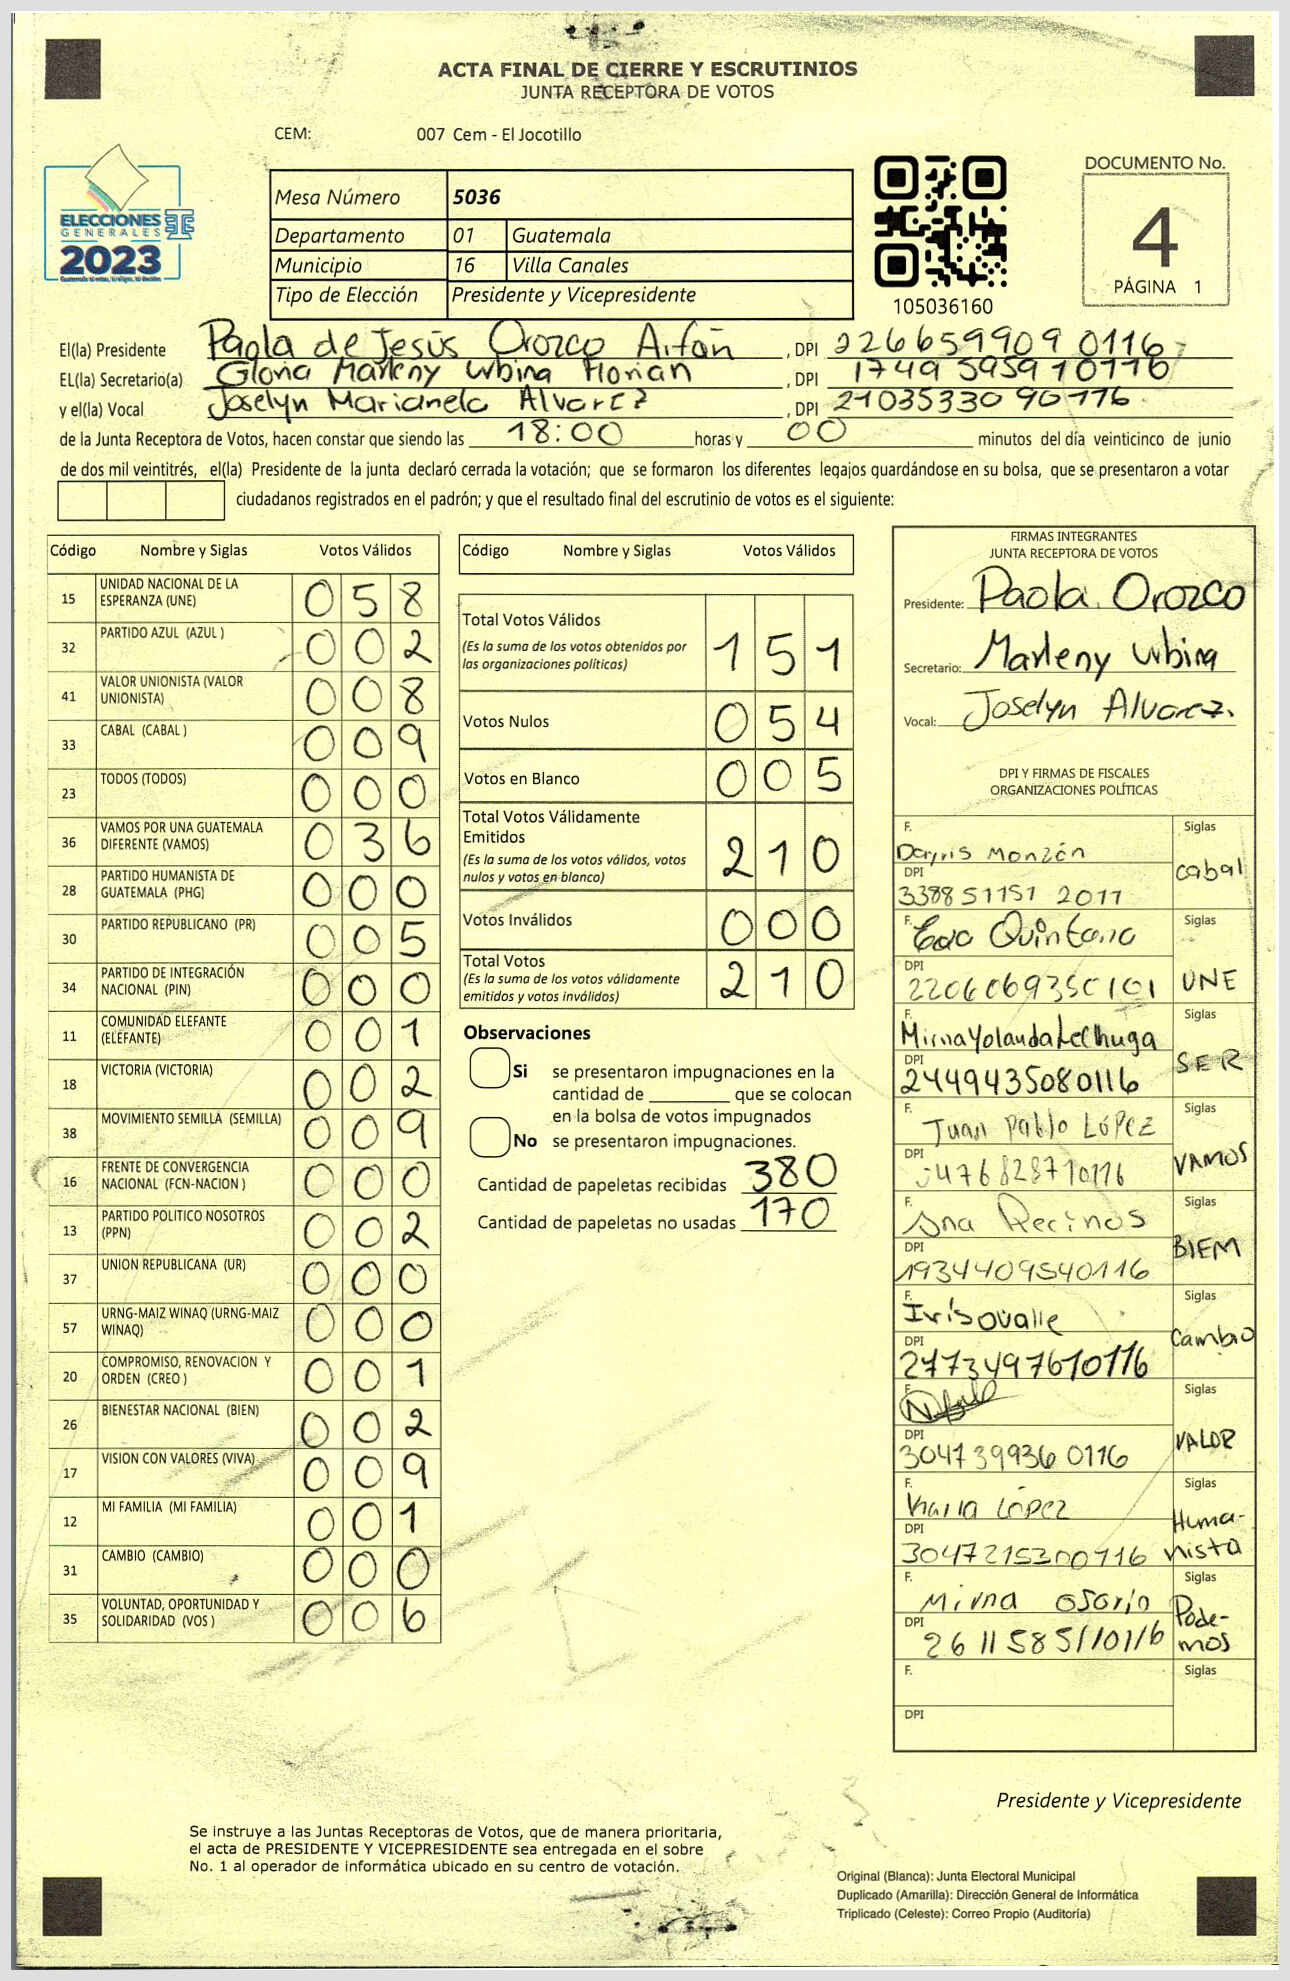 ACTA FINAL DE CIERRE Y ESCRUTINIOS
JUNTA RECEPTORA DE VOTOS
CEM: 007 Cem - El Jocotillo
ELECCIONES
GENERALES
2023
Mesa Número 5036
Departamento 01 Guatemala
Municipio 16 Villa Canales
Tipo de Elección Presidente y Vicepresidente
105036160
DOCUMENTO No.
4
PÁGINA 1
El(la) Presidente Paola de Jesús Orozco , DPI 226659909 0116
EL(la) Secretario(a) Gloria Marleny Urbina Florian , DPI 1749 59591 0116
y el(la) Vocal Joselyn Marianela Alvarez , DPI 21035330 90116
de la Junta Receptora de Votos, hacen constar que siendo las 18:00 horas y 00 minutos del día veinticinco de junio
de dos mil veintitrés, el(la) Presidente de la junta declaró cerrada la votación; que se formaron los diferentes legajos guardándose en su bolsa, que se presentaron a votar
ciudadanos registrados en el padrón; y que el resultado final del escrutinio de votos es el siguiente:
Código Nombre y Siglas Votos Válidos
15 UNIDAD NACIONAL DE LA ESPERANZA (UNE) 0 5 8
32 PARTIDO AZUL (AZUL ) 0 0 2
41 VALOR UNIONISTA (VALOR UNIONISTA) 0 0 8
33 CABAL (CABAL ) 0 0 9
23 TODOS (TODOS) 0 0 0
36 VAMOS POR UNA GUATEMALA DIFERENTE (VAMOS) 0 3 6
28 PARTIDO HUMANISTA DE GUATEMALA (PHG) 0 0 0
30 PARTIDO REPUBLICANO (PR) 0 0 5
34 PARTIDO DE INTEGRACIÓN NACIONAL (PIN) 0 0 0
11 COMUNIDAD ELEFANTE (ELEFANTE) 0 0 1
18 VICTORIA (VICTORIA) 0 0 2
38 MOVIMIENTO SEMILLA (SEMILLA) 0 0 9
16 FRENTE DE CONVERGENCIA NACIONAL (FCN-NACION ) 0 0 0
13 PARTIDO POLITICO NOSOTROS (PPN) 0 0 2
37 UNION REPUBLICANA (UR) 0 0 0
57 URNG-MAIZ WINAQ (URNG-MAIZ WINAQ) 0 0 0
20 COMPROMISO, RENOVACION Y ORDEN (CREO ) 0 0 1
26 BIENESTAR NACIONAL (BIEN) 0 0 2
17 VISION CON VALORES (VIVA) 0 0 9
12 MI FAMILIA (MI FAMILIA) 0 0 1
31 CAMBIO (CAMBIO) 0 0 0
35 VOLUNTAD, OPORTUNIDAD Y SOLIDARIDAD (VOS ) 0 0 6
Código Nombre y Siglas Votos Válidos
Total Votos Válidos 1 5 1
(Es la suma de los votos obtenidos por
las organizaciones políticas)
Votos Nulos 0 5 4
Votos en Blanco 0 0 5
Total Votos Válidamente
Emitidos 2 1 0
(Es la suma de los votos válidos, votos
nulos y votos en blanco)
Votos Inválidos 0 0 0
Total Votos 2 1 0
(Es la suma de los votos válidamente
emitidos y votos inválidos)
Observaciones
Si se presentaron impugnaciones en la
cantidad de ________ que se colocan
en la bolsa de votos impugnados
No se presentaron impugnaciones.
Cantidad de papeletas recibidas 380
Cantidad de papeletas no usadas 170
FIRMAS INTEGRANTES
JUNTA RECEPTORA DE VOTOS
Presidente: Paola Orozco
Secretario: Marleny Urbina
Vocal: Joselyn Alvarez.
DPI Y FIRMAS DE FISCALES
ORGANIZACIONES POLÍTICAS
F. Monzón Siglas
DPI 338851151 2011 cabal
F. Quintana Siglas
DPI 2206069350101 UNE
F. Mirna Yolanda Lechuga Siglas
DPI 2449435080116 SER
F. Juan Pablo López Siglas
DPI 476828710116 VAMOS
F. Ana Recinos Siglas
DPI 1934409540116 BIEM
F. Iris Ovalle Siglas
DPI 2773497610116 Cambio
F. Siglas
DPI 304739936 0116 VALOR
F. López Siglas
DPI 3047215300116 Huma-
nista
F. Mirna Osorio Siglas
DPI 2611585110116 Pode-
mos
F. Siglas
DPI
Presidente y Vicepresidente
Se instruye a las Juntas Receptoras de Votos, que de manera prioritaria,
el acta de PRESIDENTE Y VICEPRESIDENTE sea entregada en el sobre
No. 1 al operador de informática ubicado en su centro de votación.
Original (Blanca): Junta Electoral Municipal
Duplicado (Amarilla): Dirección General de Informática
Triplicado (Celeste): Correo Propio (Auditoría)